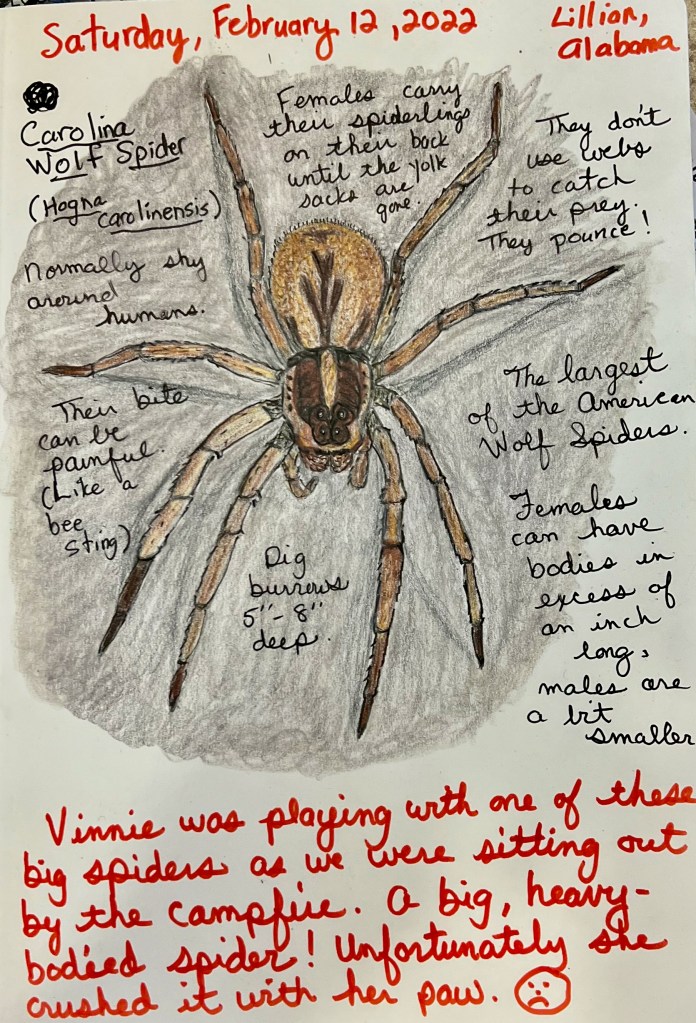 Saturday, February 12, 2022
Lillian,
Alabama
Carolina
Wolf Spider
(Hogna
carolinensis)
Normally shy
around
humans.
Their bite
can be
painful.
(Like a
bee
sting)
Females carry
their spiderlings
on their back
until the yolk
sacks are
gone.
They don't
use webs
to catch
their prey.
They pounce!
The largest
of the American
Wolf Spiders.
Females
can have
bodies in
excess of
an inch
long,
males are
a bit
smaller
Dig
burrows
5"-8"
deep.
Vinnie was playing with one of these
big spiders as we were sitting out
by the campfire. A big, heavy-
bodied spider! Unfortunately she
crushed it with her paw.